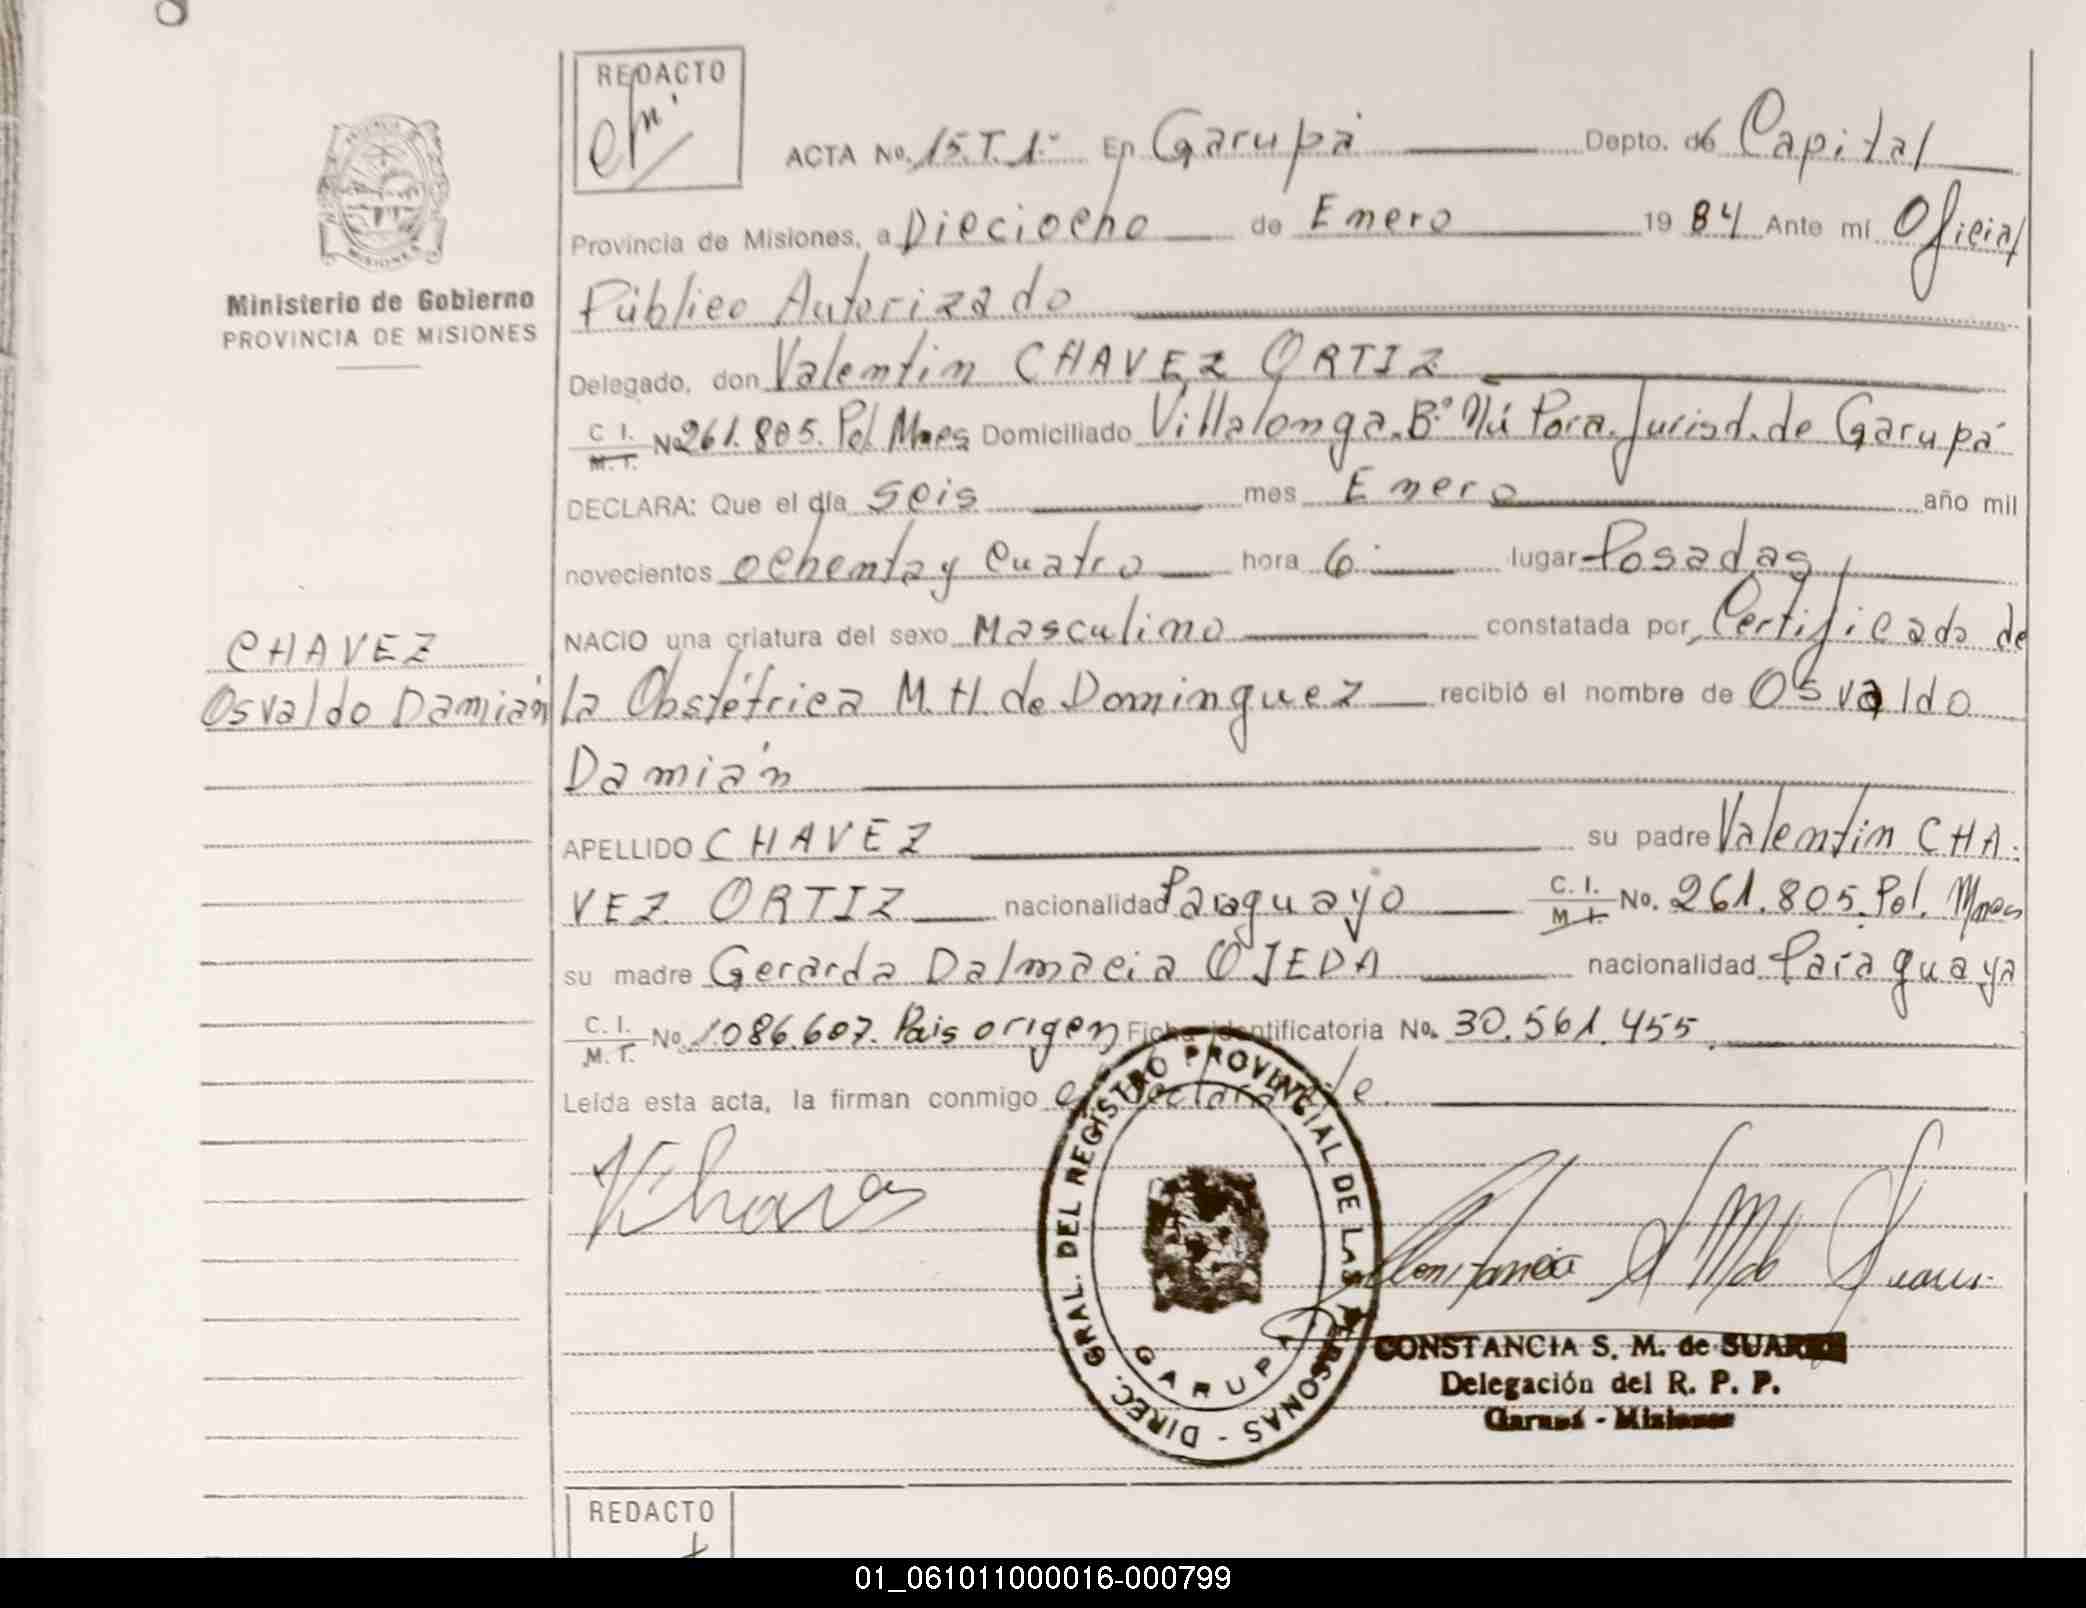 REDACTO
ACTA No. 15. T. 1.º En Garupá Depto. de Capital
Provincia de Misiones, a Dieciocho de Enero 1984 Ante mí Oficial
Público Autorizado
Ministerio de Gobierno
PROVINCIA DE MISIONES
Delegado, don Valentin CHAVEZ ORTIZ
C. I. M. T. No 261.805. Pol. Mnes Domiciliado Villalonga. B.º Ñú Porá. Jurisd. de Garupá
DECLARA: Que el día seis mes Enero año mil
novecientos ochenta y cuatro hora 6 lugar Posadas
NACIO una criatura del sexo Masculino constatada por Certificado de
CHAVEZ
Osvaldo Damián
la Obstétrica M. H. de Dominguez recibió el nombre de Osvaldo
Damián
APELLIDO CHAVEZ su padre Valentin CHA-
VEZ ORTIZ nacionalidad Paraguayo C. I. M. I. No. 261.805. Pol. Mnes
su madre Gerarda Dalmacia OJEDA nacionalidad Paraguaya
C. I. M. T. No. 1.086.607. Pais origen Ficha identificatoria No. 30.561.455
Leída esta acta, la firman conmigo el declarante.
DIREC. GRAL. DEL REGISTRO PROVINCIAL DE LAS PERSONAS -
GARUPA
CONSTANCIA S. M. de SUAREZ
Delegación del R. P. P.
Garupá - Misiones
REDACTO
01_061011000016-000799